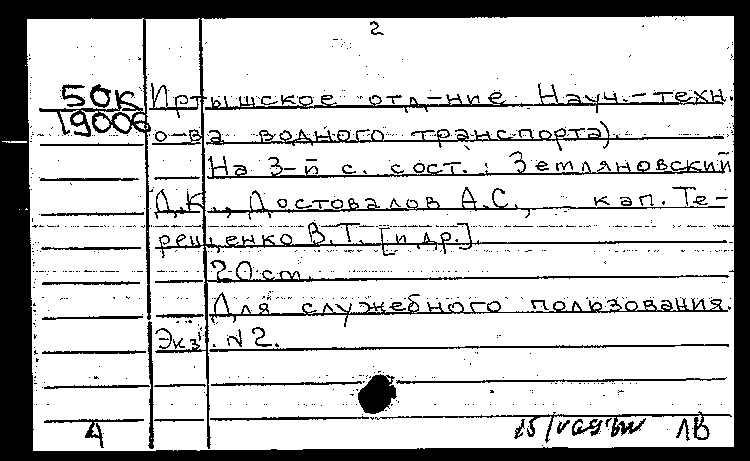 2
50К
19006
Иртышское отд-ние Науч.-техн.
о-ва водного транспорта).
На 3-й с. сост.: Земляновский
Д.К., Достовалов А.С., кап. Те-
рещенко В.Т. [и др.].
20 ст.
Для служебного пользования.
Экз. N2.
4
15/ ЛВ